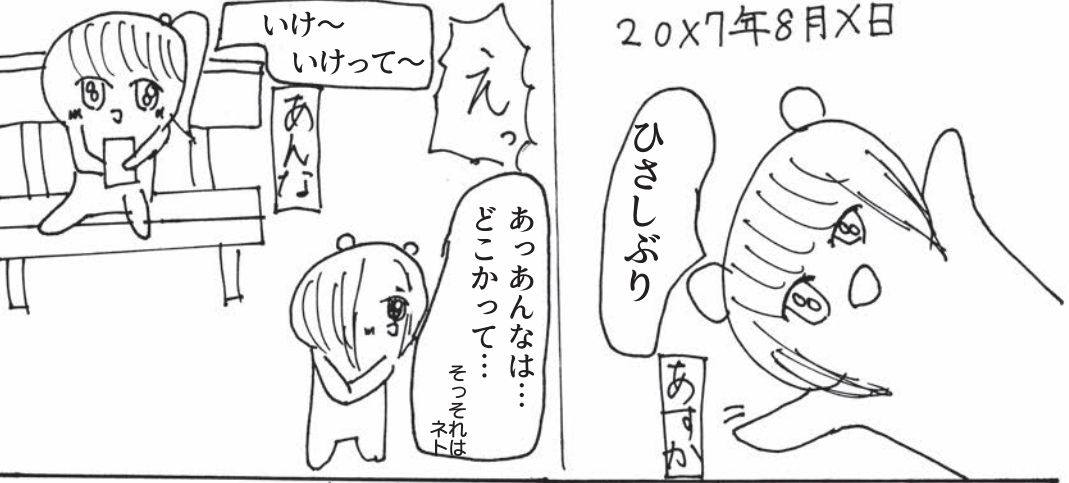 20X7年8月X日
ひさしぶり
あすか
えっ
いけ〜
いけって〜
あんな
あっあんなは…
どこかって…
そっそれは
ネト